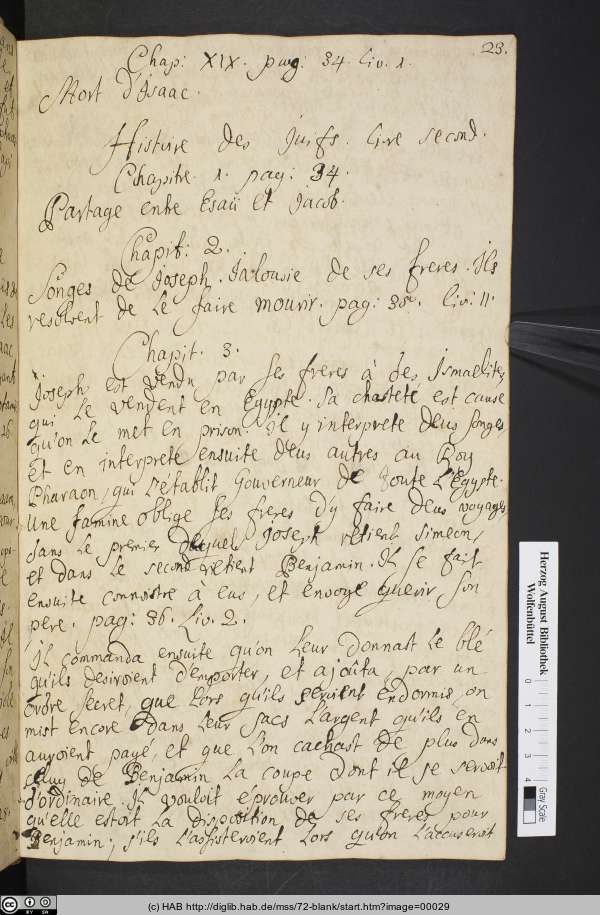 23.
Chap: XIX. pag: 34. Liv. 1.
Mort d'Isaac.
Histoire des Juifs. livre second.
Chapitre. 1. pag: 34.
Partage entre Esaü et Jacob.
Chapit: 2.
Songes de Joseph. Jalousie de ses freres. Ils
resolvent de le faire mourir. pag: 35. Liv: II.
Chapit. 3.
Joseph est vendu par ses freres à des Ismaelites,
qui le vendent en Egypte. Sa chasteté est cause
qu'on le met en prison. Il y interprete deus songes
et en interprete ensuite deus autres au Roy
Pharaon, qui l'établit Gouverneur de toute l'Egypte.
Une famine oblige ses freres d'y faire deus voyages,
dans le premier desquels Joseph retient Simeon,
et dans le second retient Benjamin. Il se fait
ensuite connoitre à eus, et envoye querir son
pere. pag: 36. Liv. 2.
Il commanda ensuite qu'on leur donnast le blé
qu'ils desiroient d'emporter, et ajoûta, par un
ordre secret, que lors qu'ils seroient endormis, on
mist encore dans leur sacs l'argent qu'ils en
auroient payé, et que l'on cachast de plus dans
celuy de Benjamin la coupe dont il se servoit
d'ordinaire. Il vouloit éprouver par ce moyen
qu'elle estoit la disposition de ses freres pour
Benjamin; s'ils l'assisteroient lors qu'on l'accuseroit
Herzog August Bibliothek
Wolfenbüttel
0 1 2 3 4
Gray Scale
(c) HAB http://diglib.hab.de/mss/72-blank/start.htm?image=00029